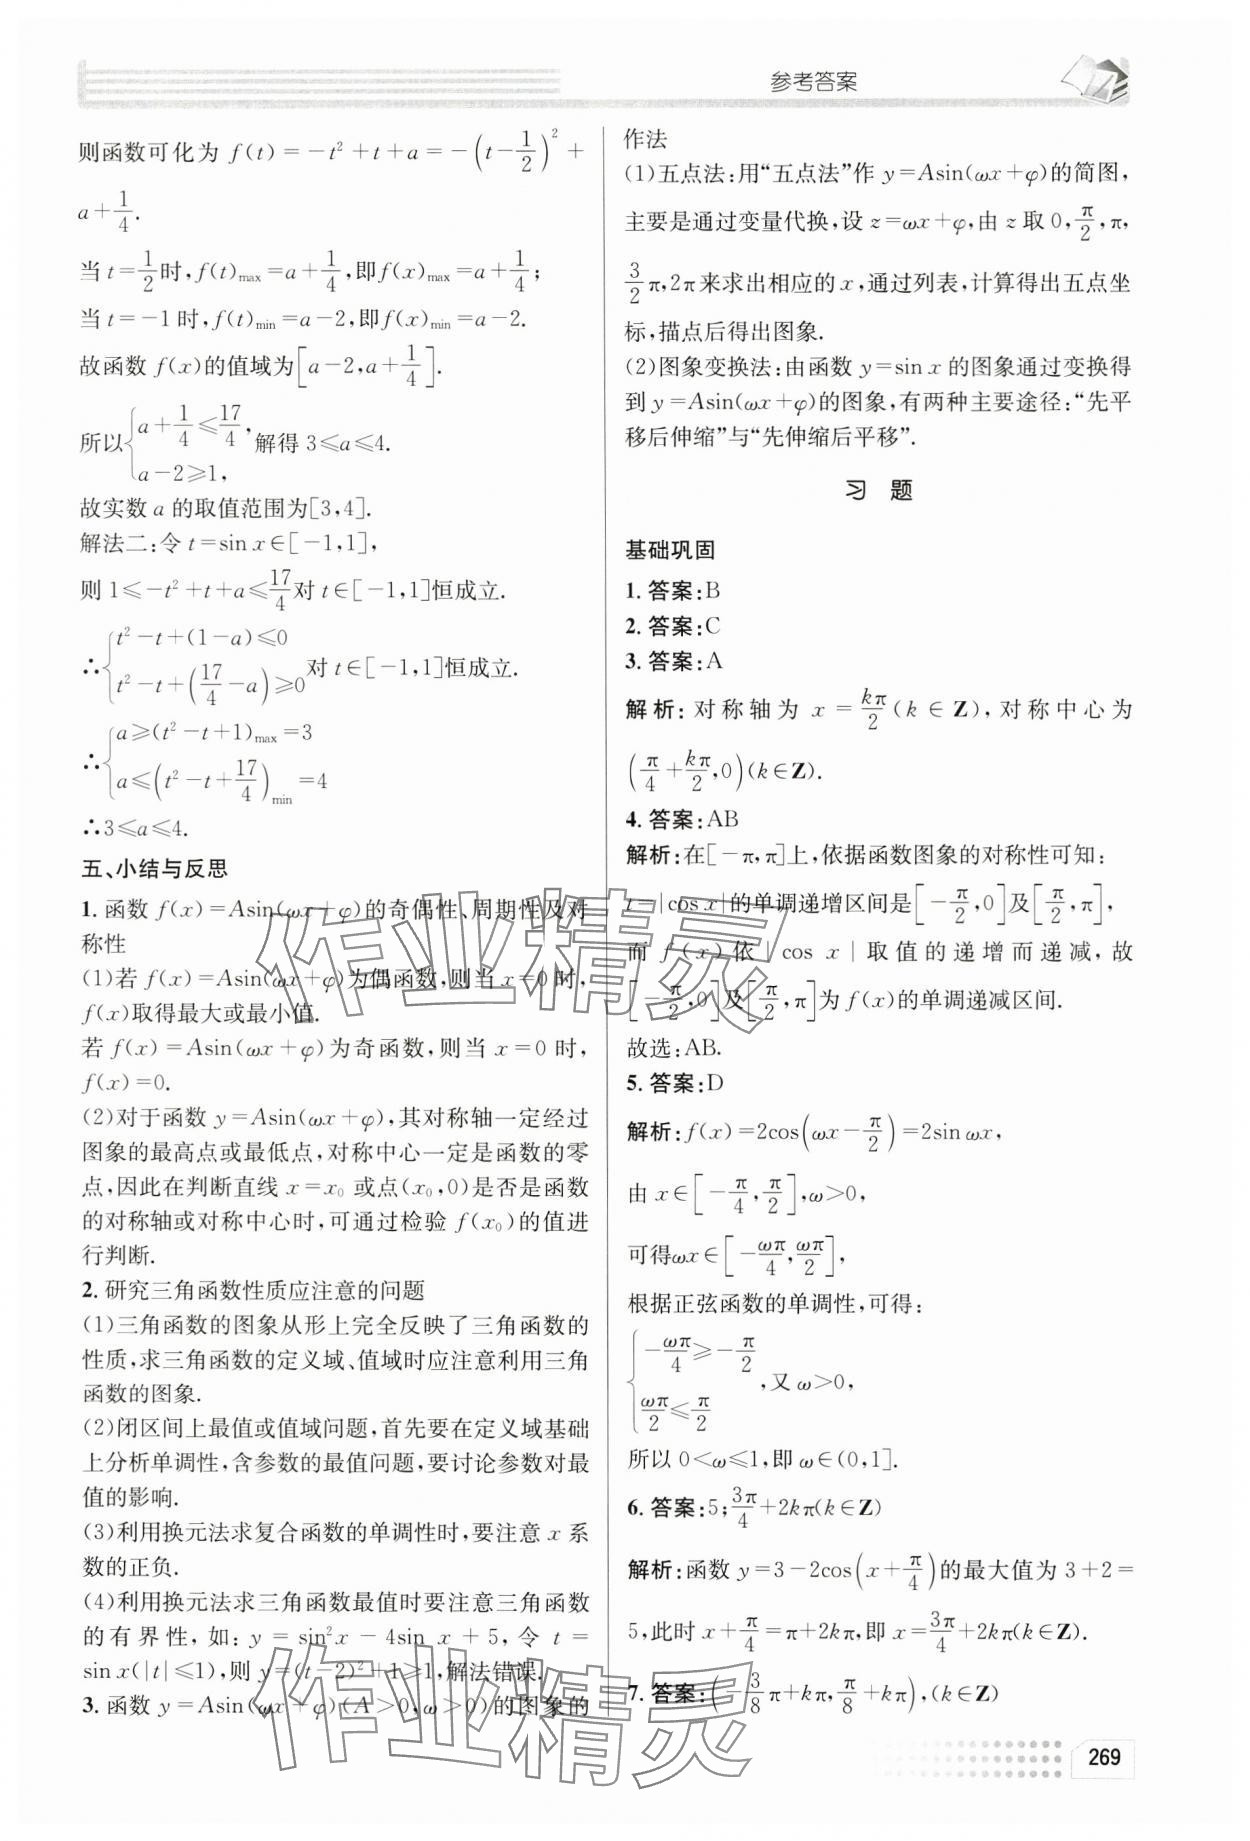 参考答案
则函数可化为 f(t)=-t²+t+a=-(t-1/2)²+
a+1/4.
当 t=1/2时,f(t)max=a+1/4,即f(x)max=a+1/4;
当 t=-1时,f(t)min=a-2,即f(x)min=a-2.
故函数 f(x)的值域为[a-2,a+1/4].
所以{a+1/4≤17/4, a-2≥1, 解得 3≤a≤4.
故实数 a 的取值范围为[3,4].
解法二:令 t=sin x∈[-1,1],
则 1≤-t²+t+a≤17/4对 t∈[-1,1]恒成立.
∴{t²-t+(1-a)≤0 t²-t+(17/4-a)≥0 对 t∈[-1,1]恒成立.
∴{a≥(t²-t+1)max=3 a≤(t²-t+17/4)min=4
∴3≤a≤4.
五、小结与反思
1. 函数 f(x)=Asin(ωx+φ)的奇偶性、周期性及对
称性
(1)若 f(x)=Asin(ωx+φ)为偶函数,则当 x=0 时,
f(x)取得最大或最小值.
若 f(x)=Asin(ωx+φ)为奇函数,则当 x=0 时,
f(x)=0.
(2)对于函数 y=Asin(ωx+φ),其对称轴一定经过
图象的最高点或最低点,对称中心一定是函数的零
点,因此在判断直线 x=x₀ 或点(x₀,0)是否是函数
的对称轴或对称中心时,可通过检验 f(x₀)的值进
行判断.
2. 研究三角函数性质应注意的问题
(1)三角函数的图象从形上完全反映了三角函数的
性质,求三角函数的定义域、值域时应注意利用三角
函数的图象.
(2)闭区间上最值或值域问题,首先要在定义域基础
上分析单调性,含参数的最值问题,要讨论参数对最
值的影响.
(3)利用换元法求复合函数的单调性时,要注意 x 系
数的正负.
(4)利用换元法求三角函数最值时要注意三角函数
的有界性,如: y=sin²x-4sin x+5,令 t=
sin x(|t|≤1),则 y=(t-2)²+1≥1,解法错误.
3. 函数 y=Asin(ωx+φ)(A>0,ω>0)的图象的
作法
(1)五点法:用“五点法”作 y=Asin(ωx+φ)的简图,
主要是通过变量代换,设 z=ωx+φ,由 z 取 0,π/2,π,
3/2π,2π来求出相应的 x,通过列表,计算得出五点坐
标,描点后得出图象.
(2)图象变换法:由函数 y=sin x 的图象通过变换得
到 y=Asin(ωx+φ)的图象,有两种主要途径:“先平
移后伸缩”与“先伸缩后平移”.
习 题
基础巩固
1. 答案:B
2. 答案:C
3. 答案:A
解析:对称轴为 x=kπ/2(k∈Z),对称中心为
(π/4+kπ/2,0)(k∈Z).
4. 答案:AB
解析:在[-π,π]上,依据函数图象的对称性可知:
t=|cos x|的单调递增区间是[-π/2,0]及[π/2,π],
而 f(x)依 cos x|取值的递增而递减,故
[-π/2,0]及[π/2,π]为 f(x)的单调递减区间.
故选:AB.
5. 答案:D
解析:f(x)=2cos(ωx-π/2)=2sin ωx,
由 x∈[-π/4,π/2],ω>0,
可得ωx∈[-ωπ/4,ωπ/2],
根据正弦函数的单调性,可得:
{-ωπ/4≥-π/2 ωπ/2≤π/2 ,又 ω>0,
所以 0<ω≤1,即 ω∈(0,1].
6. 答案:5;3π/4+2kπ(k∈Z)
解析:函数 y=3-2cos(x+π/4)的最大值为 3+2=
5,此时 x+π/4=π+2kπ,即 x=3π/4+2kπ(k∈Z).
7. 答案:(-3/8π+kπ,π/8+kπ),(k∈Z)
269
作业精灵
作业精灵